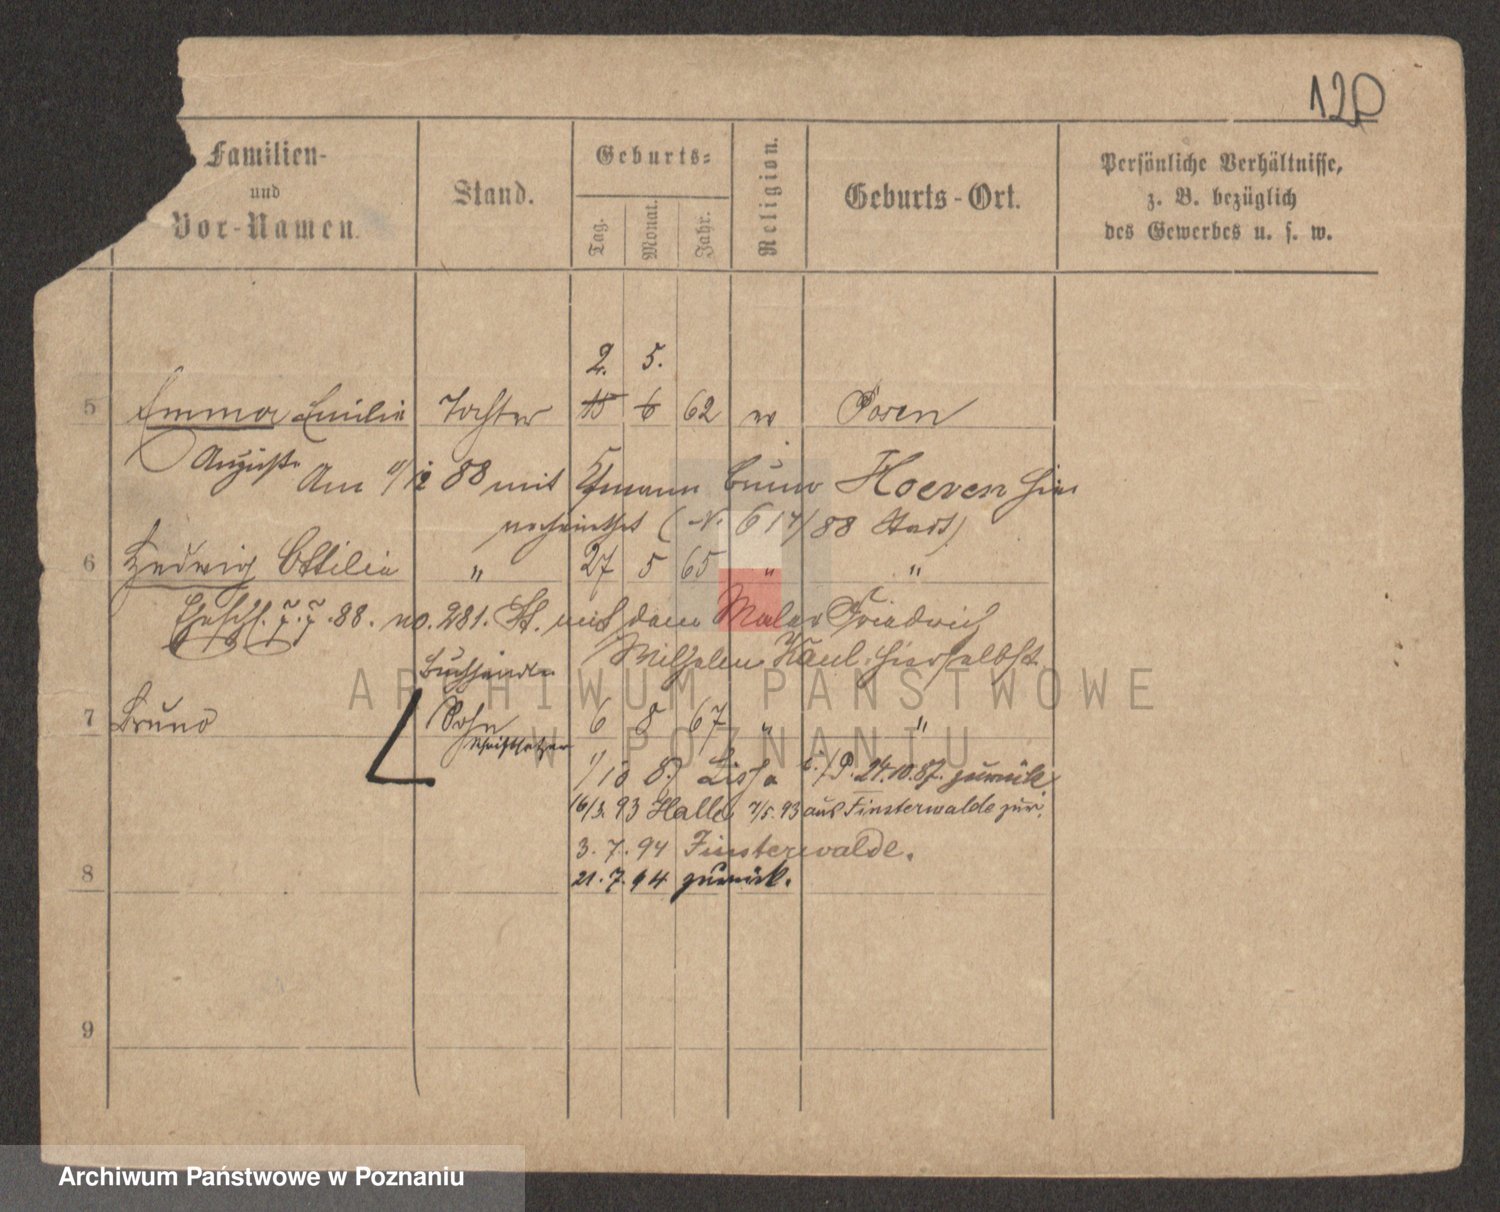 120
Familien-
und
Vor-Namen.
Stand.
Geburts-
Tag.
Monat.
Jahr.
Religion.
Geburts-Ort.
Persönliche Verhältnisse,
z. B. bezüglich
des Gewerbes u. s. w.
2. 5.
5 Emma Emilie Tochter 15 6 62 ev Posen
Auguste Am /12 88 mit Bruno Hoeven hier
verheirathet (N. 617/88 Stadt)
6 Hedwig Ottilie " 27 5 65 " "
Eheschl. 7.7.88. no. 281. St. mit dem Maler Friedrich
Wilhelm Kaul hierselbst.
7 Bruno Sohn 6 8 67 " "
Schriftsetzer
1/10 87 Lissa 24.10.87. zurück
16/3. 93 Halle 7/5. 93 aus Finsterwalde zur.
3. 7. 94 Finsterwalde.
8 21. 7. 94 zurück.
9
ARCHIWUM PAŃSTWOWE
W POZNANIU
Archiwum Państwowe w Poznaniu